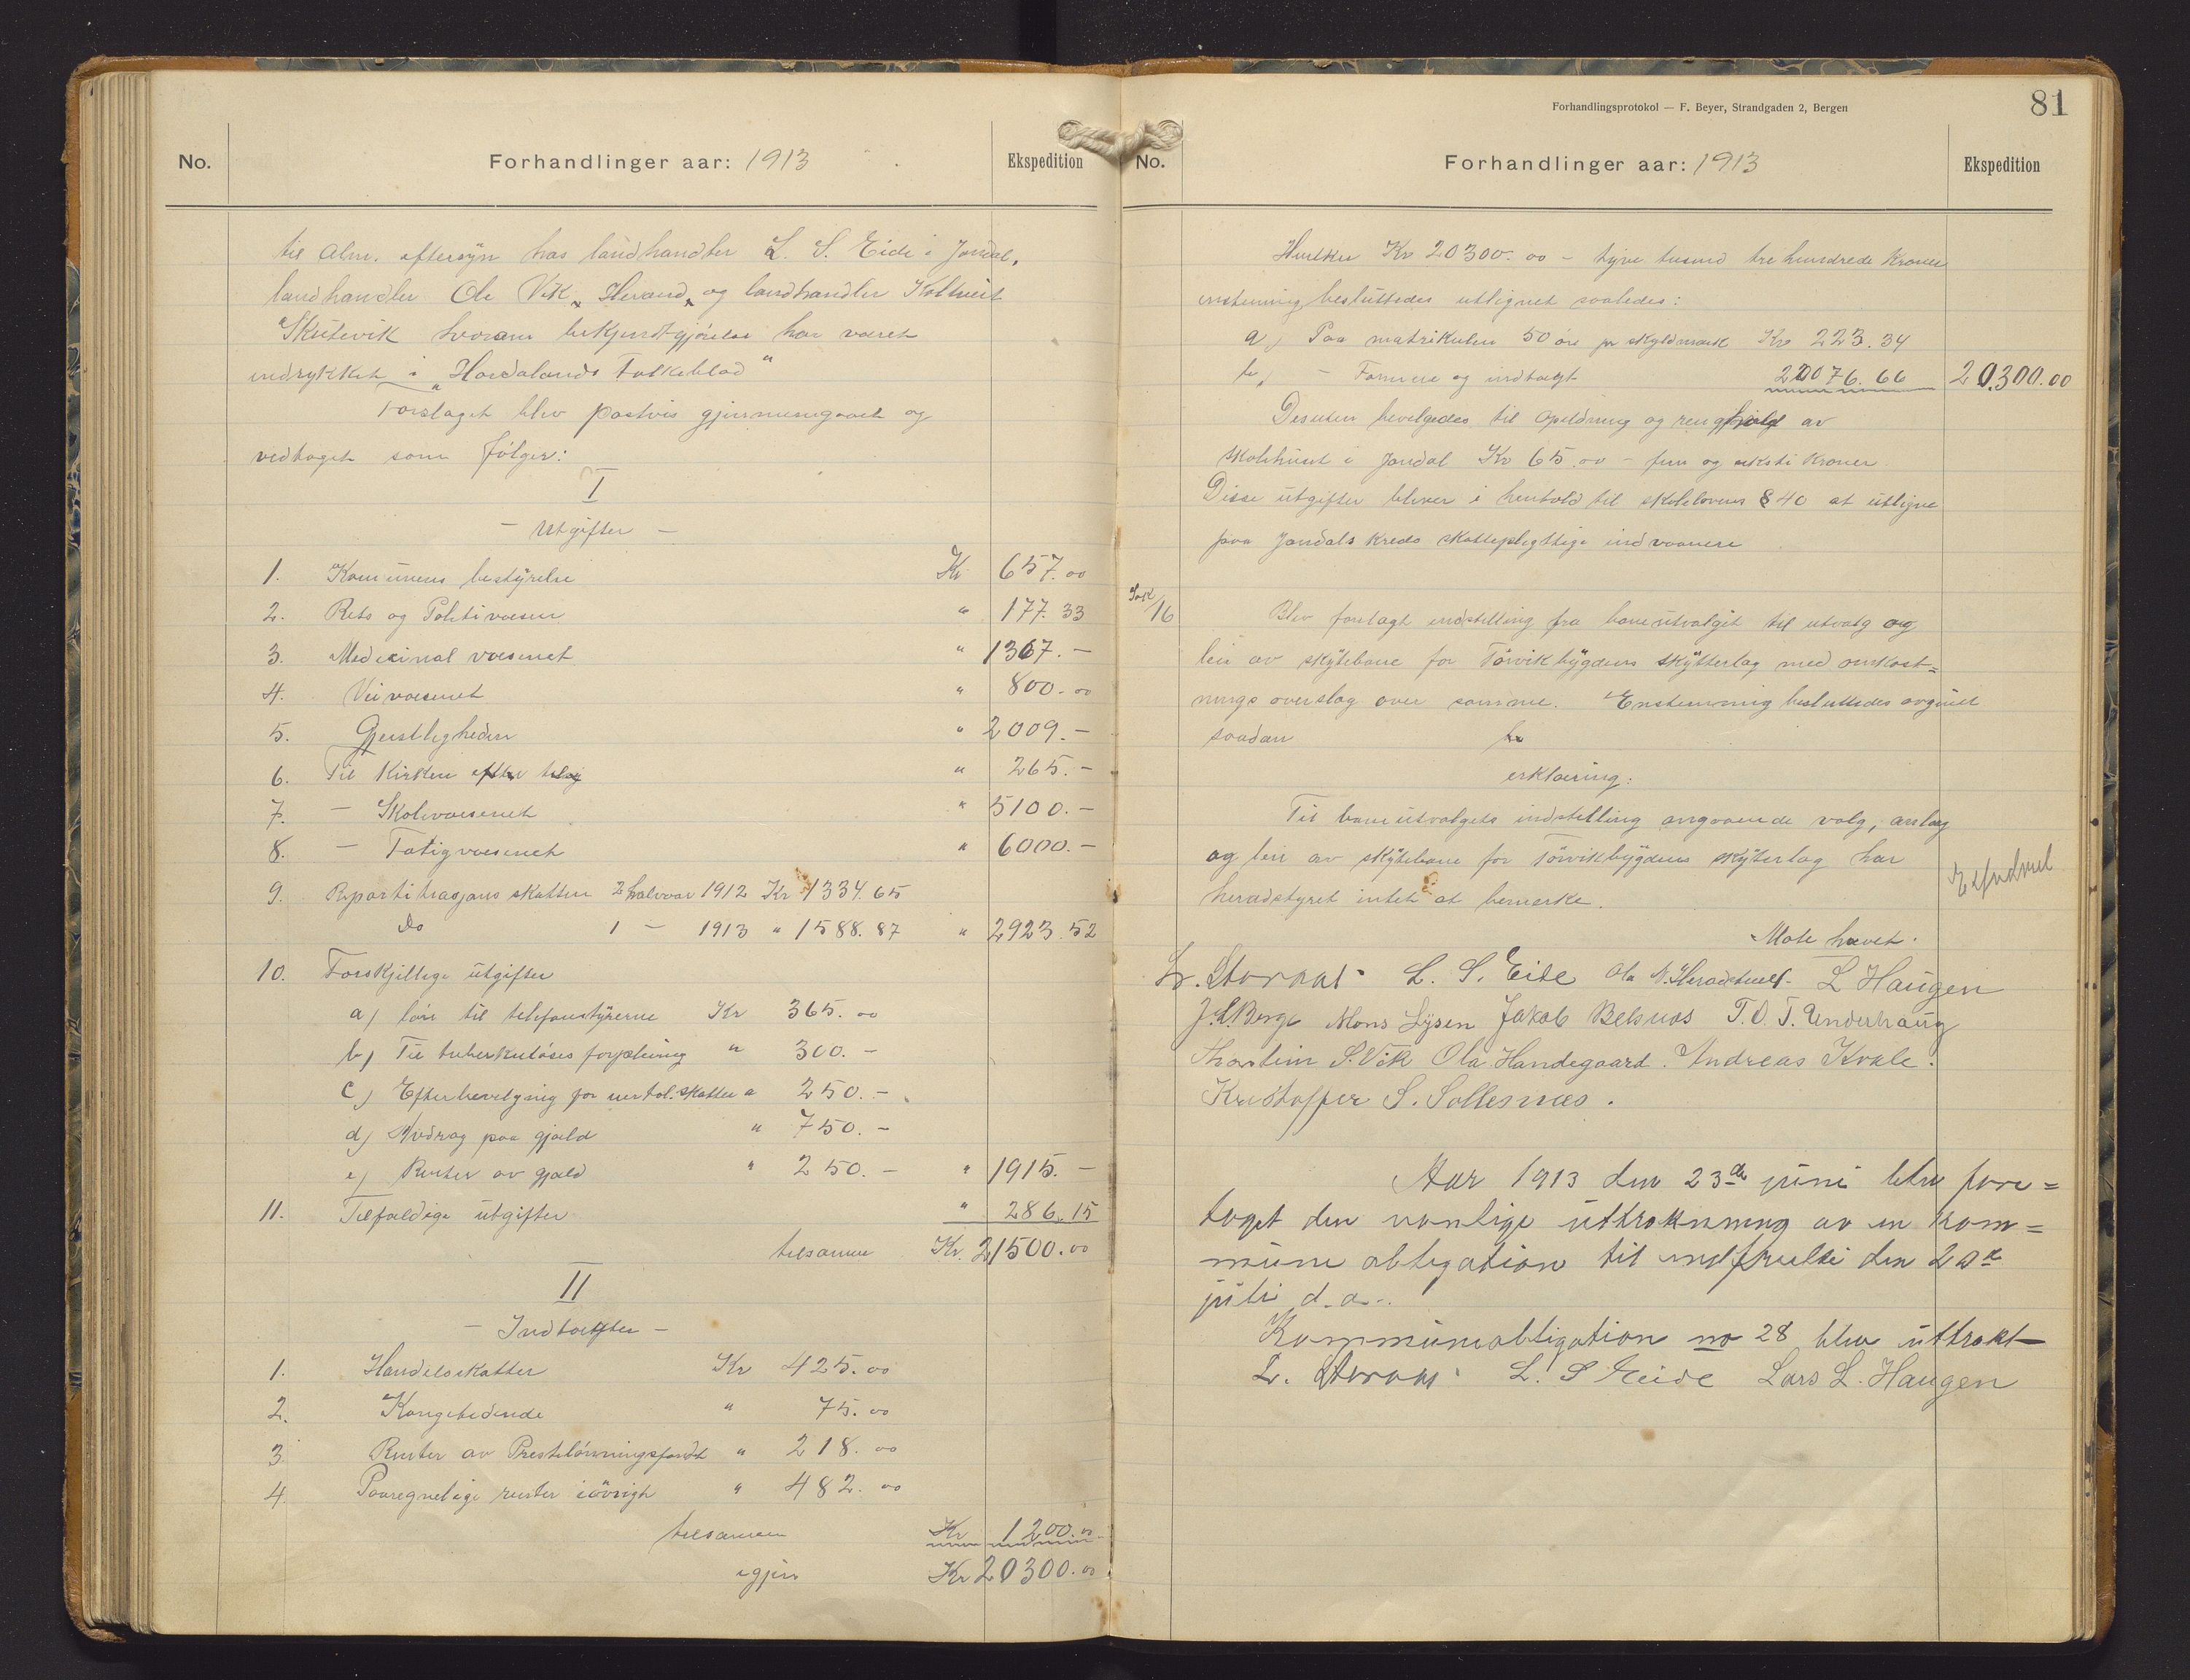 No. Forhandlinger aar: 1913 Ekspedition
til alm. eftersyn hos landhandler L. S. Eide i Jondal,
landhandler Ole Vik, Herand, og landhandler Koltveit
Skutevik hvorom bekjendtgjörelse har været
indrykket i "Hordalands Folkeblad"
Forslaget blev postvis gjennemgaaet og
vedtaget som fölger:
I
- Utgifter -
1. Komunens bestyrelse Kr 657.00
2. Rets og Politivæsen " 177.33
3. Medicinal væsenet " 1367.-
4. Veivæsenet " 800.00
5. Gjeistligheden " 2009.-
6. Til Kirken efter tilsig " 265.-
7. - Skolevæsenet " 5100.-
8. - Fatigvæsenet " 6000.-
9. Repartitrasjons skatten 2 halvaar 1912 Kr 1334.65
Do 1 - 1913 " 1588.87 " 2923.52
10. Forskjellige utgifter
a) lön til telefonstyrerne Kr 365.00
b) Til tuberkulöses forpleining " 300.-
c) Efterbevilgning for uerhol. skatter " 250.-
d) Avdrag paa gjæld " 750.-
e) Renter av gjæld " 250.- " 1915.-
11. Tilfældige utgifter " 286.15
tilsamen Kr. 21500.00
II
- Indtægter -
1. Handelsskatter Kr 425.00
2. Kongetiende " 75.00
3. Renter av Prestelönningsfondet " 218.00
4. Paaregnelige renter iövrigt " 482.00
tilsamen Kr 1200.00
igjen Kr 20300.00
Forhandlingsprotokol — F. Beyer, Strandgaden 2, Bergen
81
No. Forhandlinger aar: 1913 Ekspedition
Hvilke Kr 20300.00 - tyve tusend tre hundrede Kroner
enstemmig besluttedes utlignet saaledes:
a) Paa matrikulen 50 öre pr skyldmark Kr 223.34
b) - Formue og indtægt 20076.66 20.300.00
Desuten bevilgedes til opeldning og renghold av
skolehuset i Jondal Kr 65.00 - fem og seksti Kroner
Disse utgifter bliver i henhold til skolelovens § 40 at utligne
paa Jondals Kreds skatteplegtige indvaanere
Sak/16 Blev forelagt indstilling fra baneutvalget til utvalg og
leie av skytebane for Törvikbygdens Skytterlag med omkost=
nings overslag over samme. Enstemmig besluttedes avgivet
saadan
erklæring:
Til baneutvalgets indstilling angaaende valg, anlæg
og leie av skytebane for Törvikbygdens skyterlag har
heradstyret intet at bemerke.
Möte hævet.
L. Storaas L. S. Eide Ola N. Heradstveit. L Haugen
J. L. Berge Mons Lysen Jakob Belsnes T. O. T. Underhaug
Thorstein S. Vik Ola Handegaard. Andreas Kvale.
Kristoffer S. Sollesnæs.
Aar 1913 den 23de juni blev fore=
taget den vanlige uttrækning av en kom=
mune obligation til indfrielse den 20de
juli d. a.
Kommuneobligation no 28 blev uttrækt
L. Storaas L. S Eide Lars L. Haugen